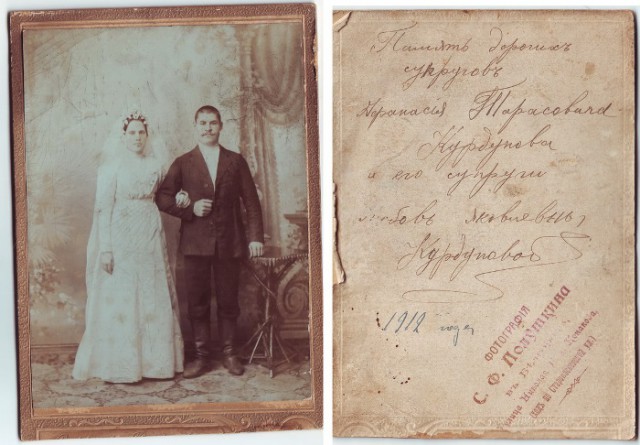 Память дорогихъ
супруговъ
Афанасія Тарасовича
Курдупова
и его супруги
Любовь Яковлевны
Курдуповой
1912 года
ФОТОГРАФІЯ
С. Ф. Полушкина
въ